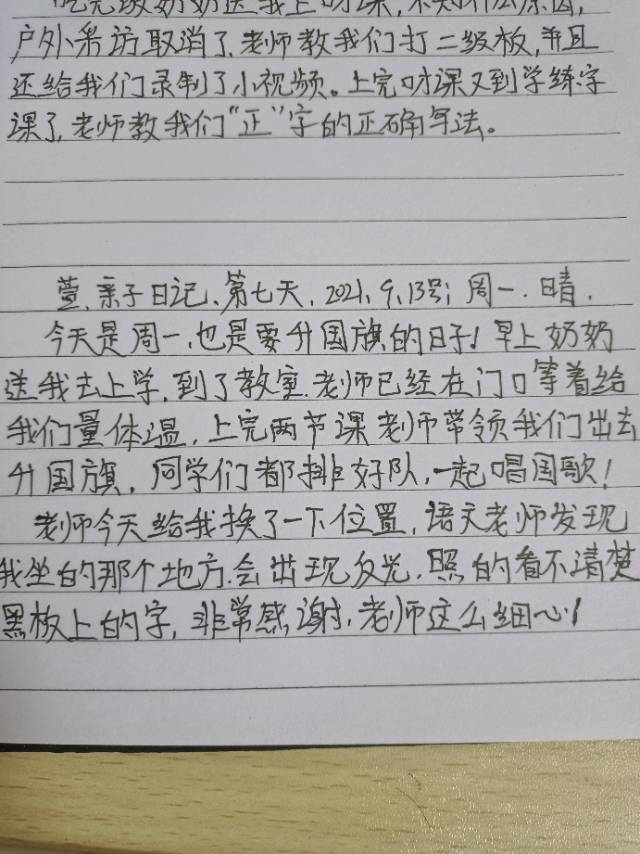 吃完饭奶奶送我上吋课,不知什么原因,
户外采访取消了,老师教我们打二级板,并且
还给我们录制了小视频。上完吋课又到学练字
课了,老师教我们“正”字的正确写法。
萱,亲子日记、第七天,2021,9,13号;周一.晴,
今天是周一,也是要升国旗的日子!早上奶奶
送我去上学,到了教室.老师已经在门口等着给
我们量体温,上完两节课老师带领我们出去
升国旗,同学们都排好队,一起唱国歌!
老师今天给我换了一下位置,语文老师发现
我坐的那个地方.会出现反光.照的看不清楚
黑板上的字,非常感谢,老师这么细心!